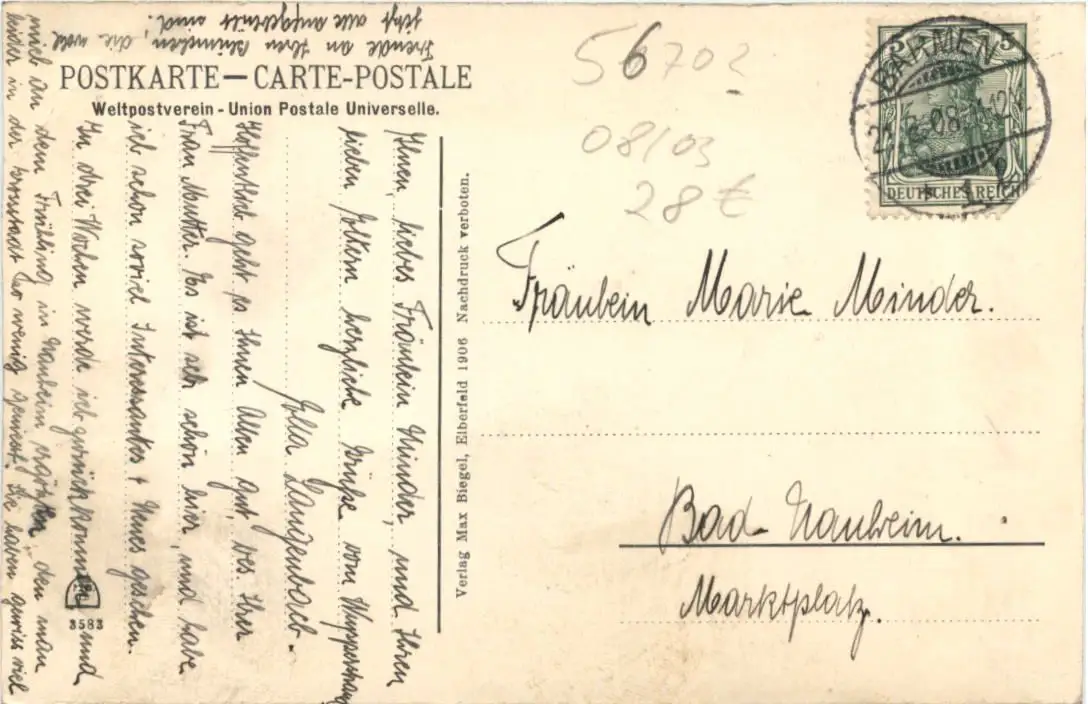 POSTKARTE — CARTE-POSTALE
Weltpostverein - Union Postale Universelle.
56702
08/03
28 €
BARMEN
21. 08. 12
5 5
DEUTSCHES REICH
Fräulein Marie Minder.
Bad-Nauheim.
Marktplatz.
Verlag Max Biegel, Elberfeld 1906 Nachdruck verboten.
3583
Ihnen, liebes Fräulein Minder, und Ihren
lieben Eltern herzliche Grüße vom Wupperstrand
Langenbach.
Hoffentlich geht es Ihnen Allen gut, bes. Ihrer
Frau Mutter. Es ist sehr schön hier, und habe
ich schon soviel Interessantes & Neues gesehen.
In drei Wochen werde ich zurückkommen und
mich an dem Frühling in Nauheim ergötzen, den man
leider in der so wenig genießt. Sie haben gewiss viel
Freude an Ihren Blümchen, die wohl
jetzt alle aufgeblüht sind.